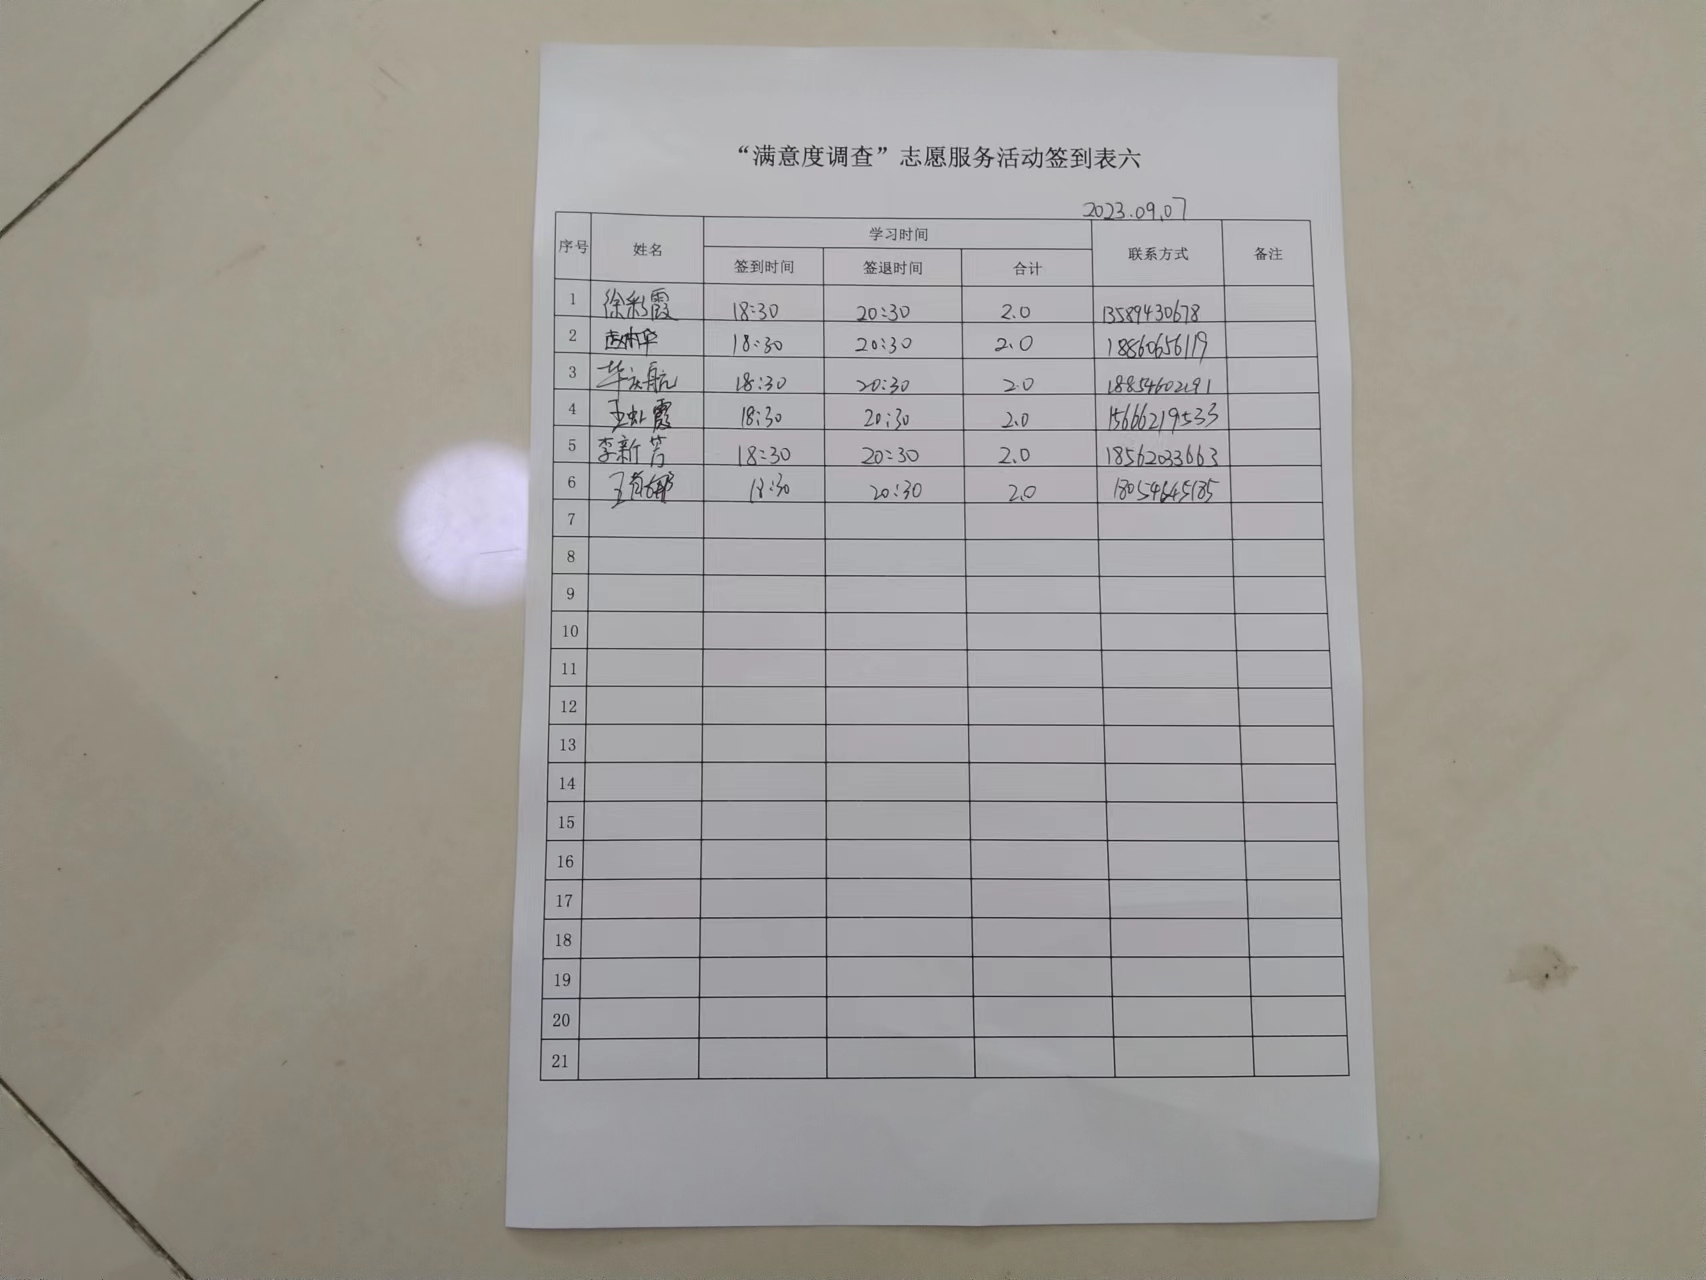 “满意度调查”志愿服务活动签到表六
2023.09.07
序号 姓名 学习时间 联系方式 备注
签到时间 签退时间 合计
1 徐彩霞 18:30 20:30 2.0 13589430678
2 18:30 20:30 2.0 18860656119
3 华庆航 18:30 20:30 2.0 18854602191
4 王虹霞 18:30 20:30 2.0 15666219533
5 李新芳 18:30 20:30 2.0 18562033663
6 18:30 20:30 2.0 18054645185
7
8
9
10
11
12
13
14
15
16
17
18
19
20
21